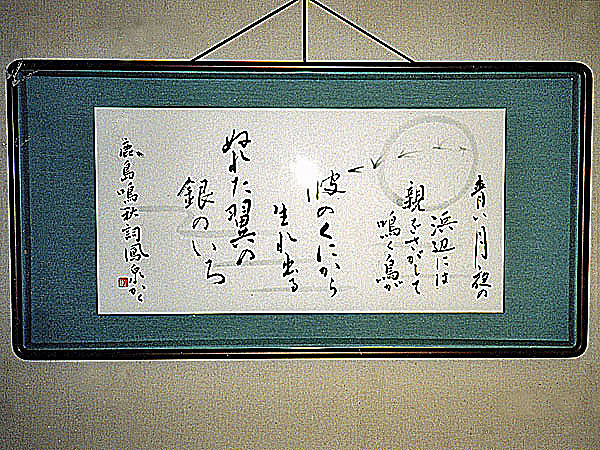 青い月夜の
浜辺には
親をさがして
鳴く鳥が
波のくにから
生れ出る
ぬれた翼の
銀のいろ
鹿島鳴秋詞 鳳泉かく